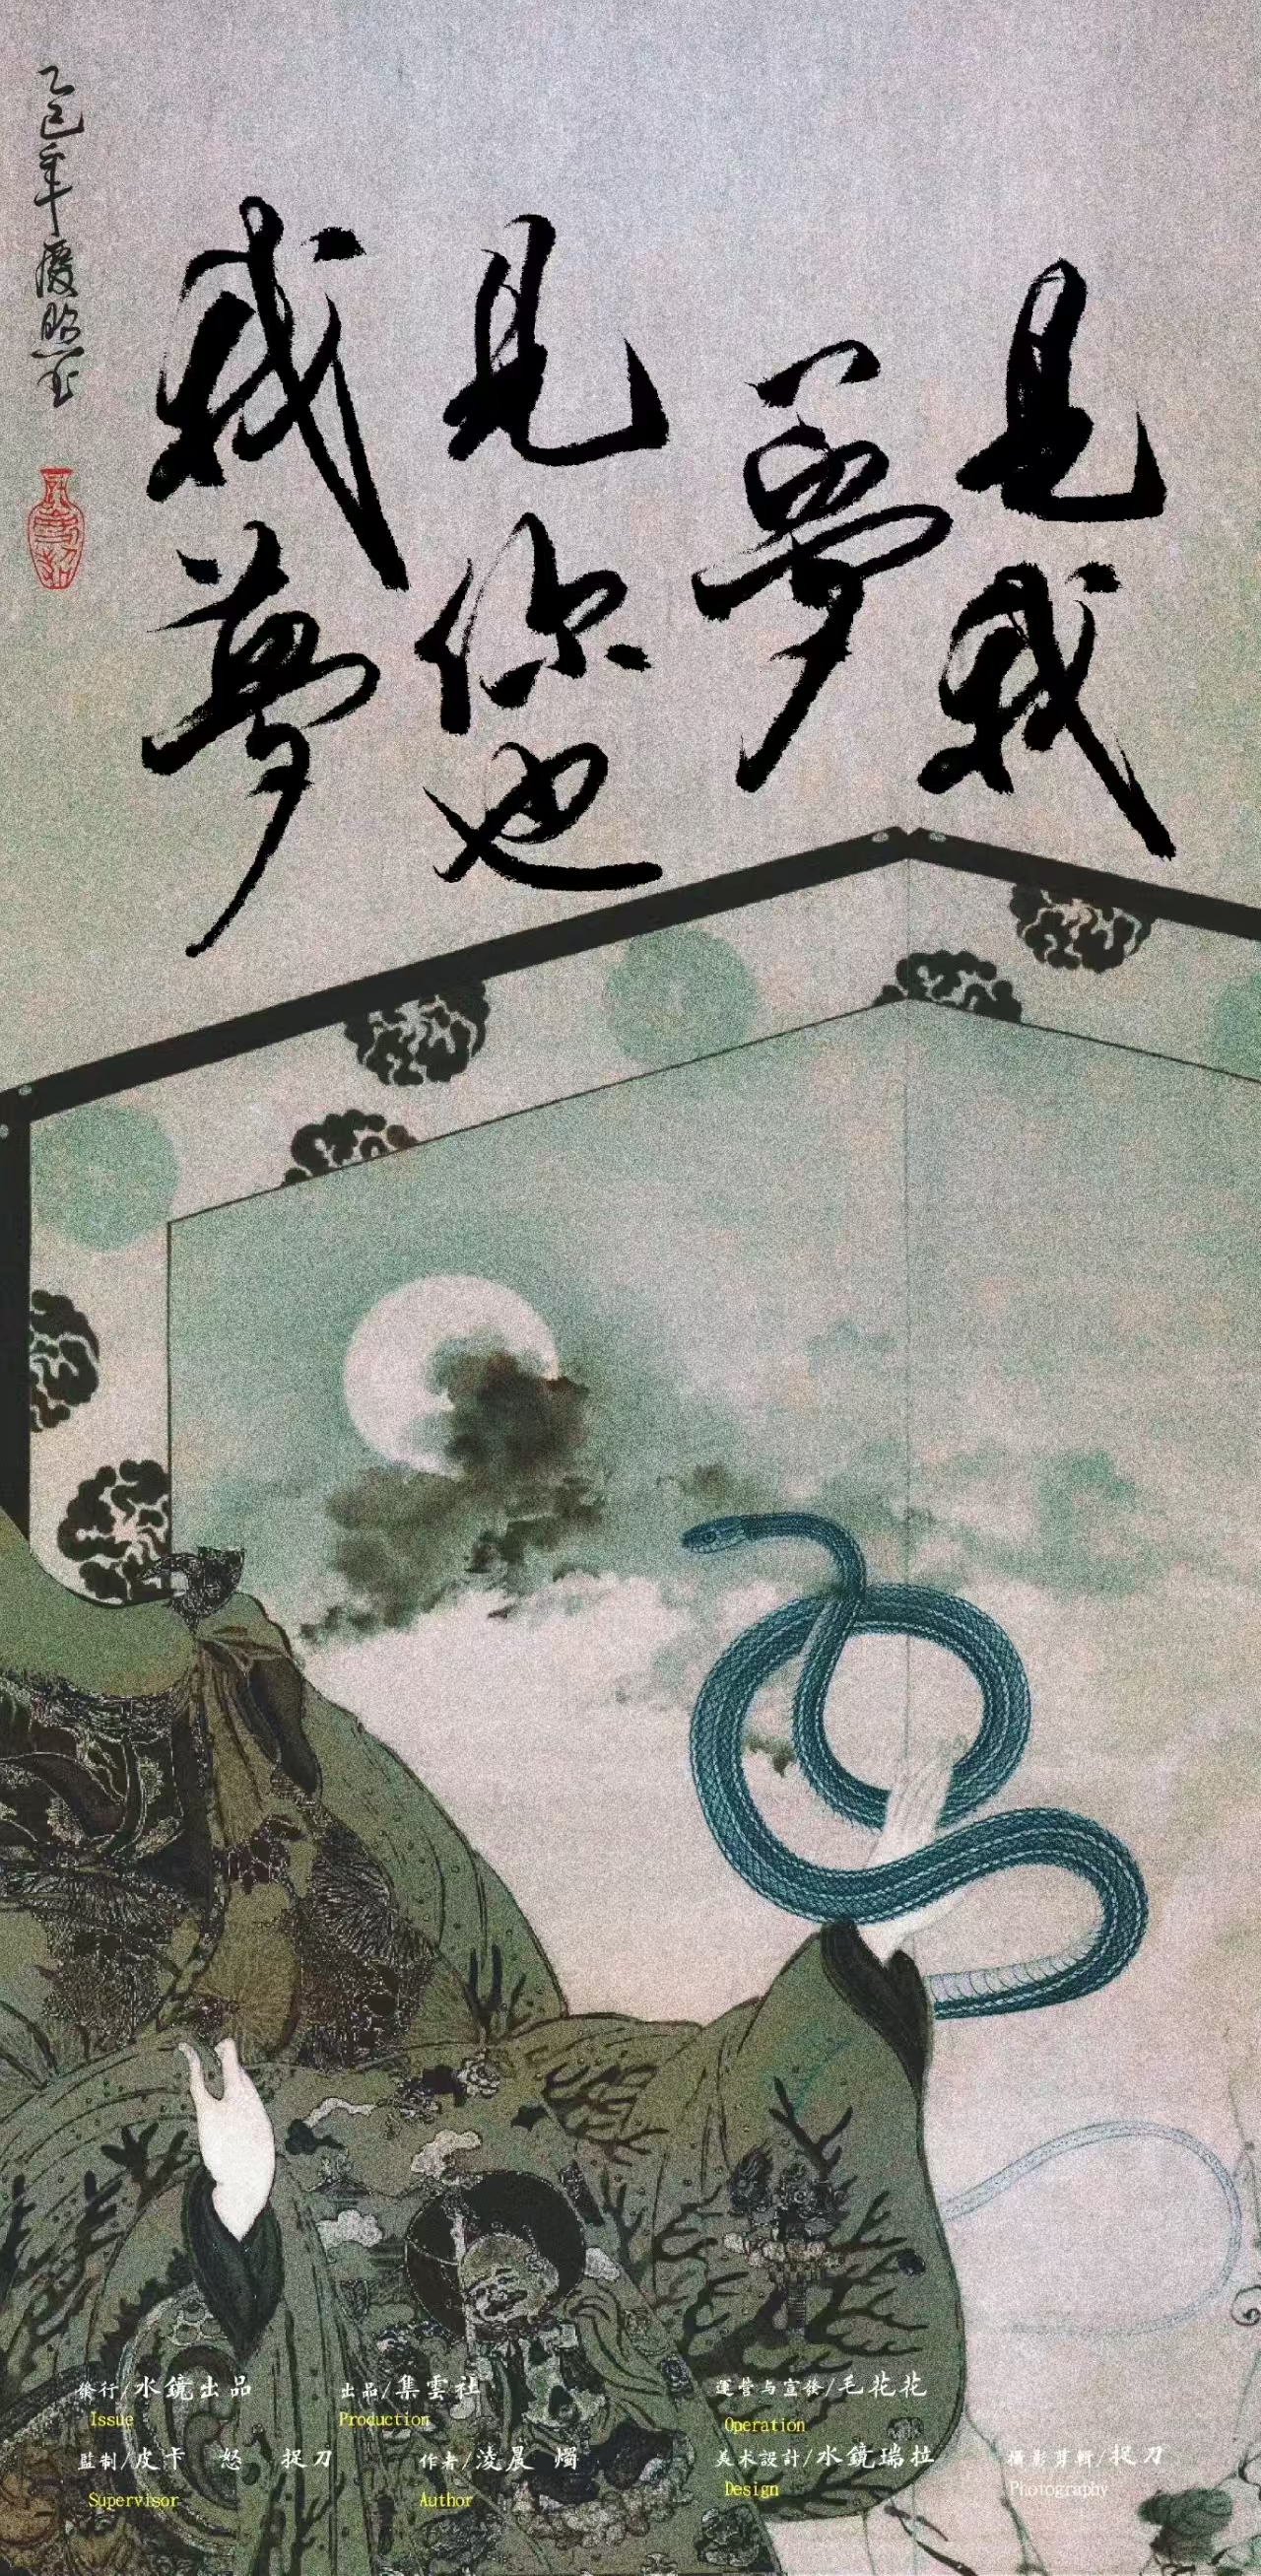 乙巳年
我夢
見你也
夢
見我
發行/水鏡出品
Issue
出品/集雲社
Production
運營与宣發/毛花花
Operation
監制/皮卡 怒 捉刀
Supervisor
作者/淩晨 燭
Author
美术設計/水鏡瑞拉
Design
攝影剪輯/捉刀
Photography